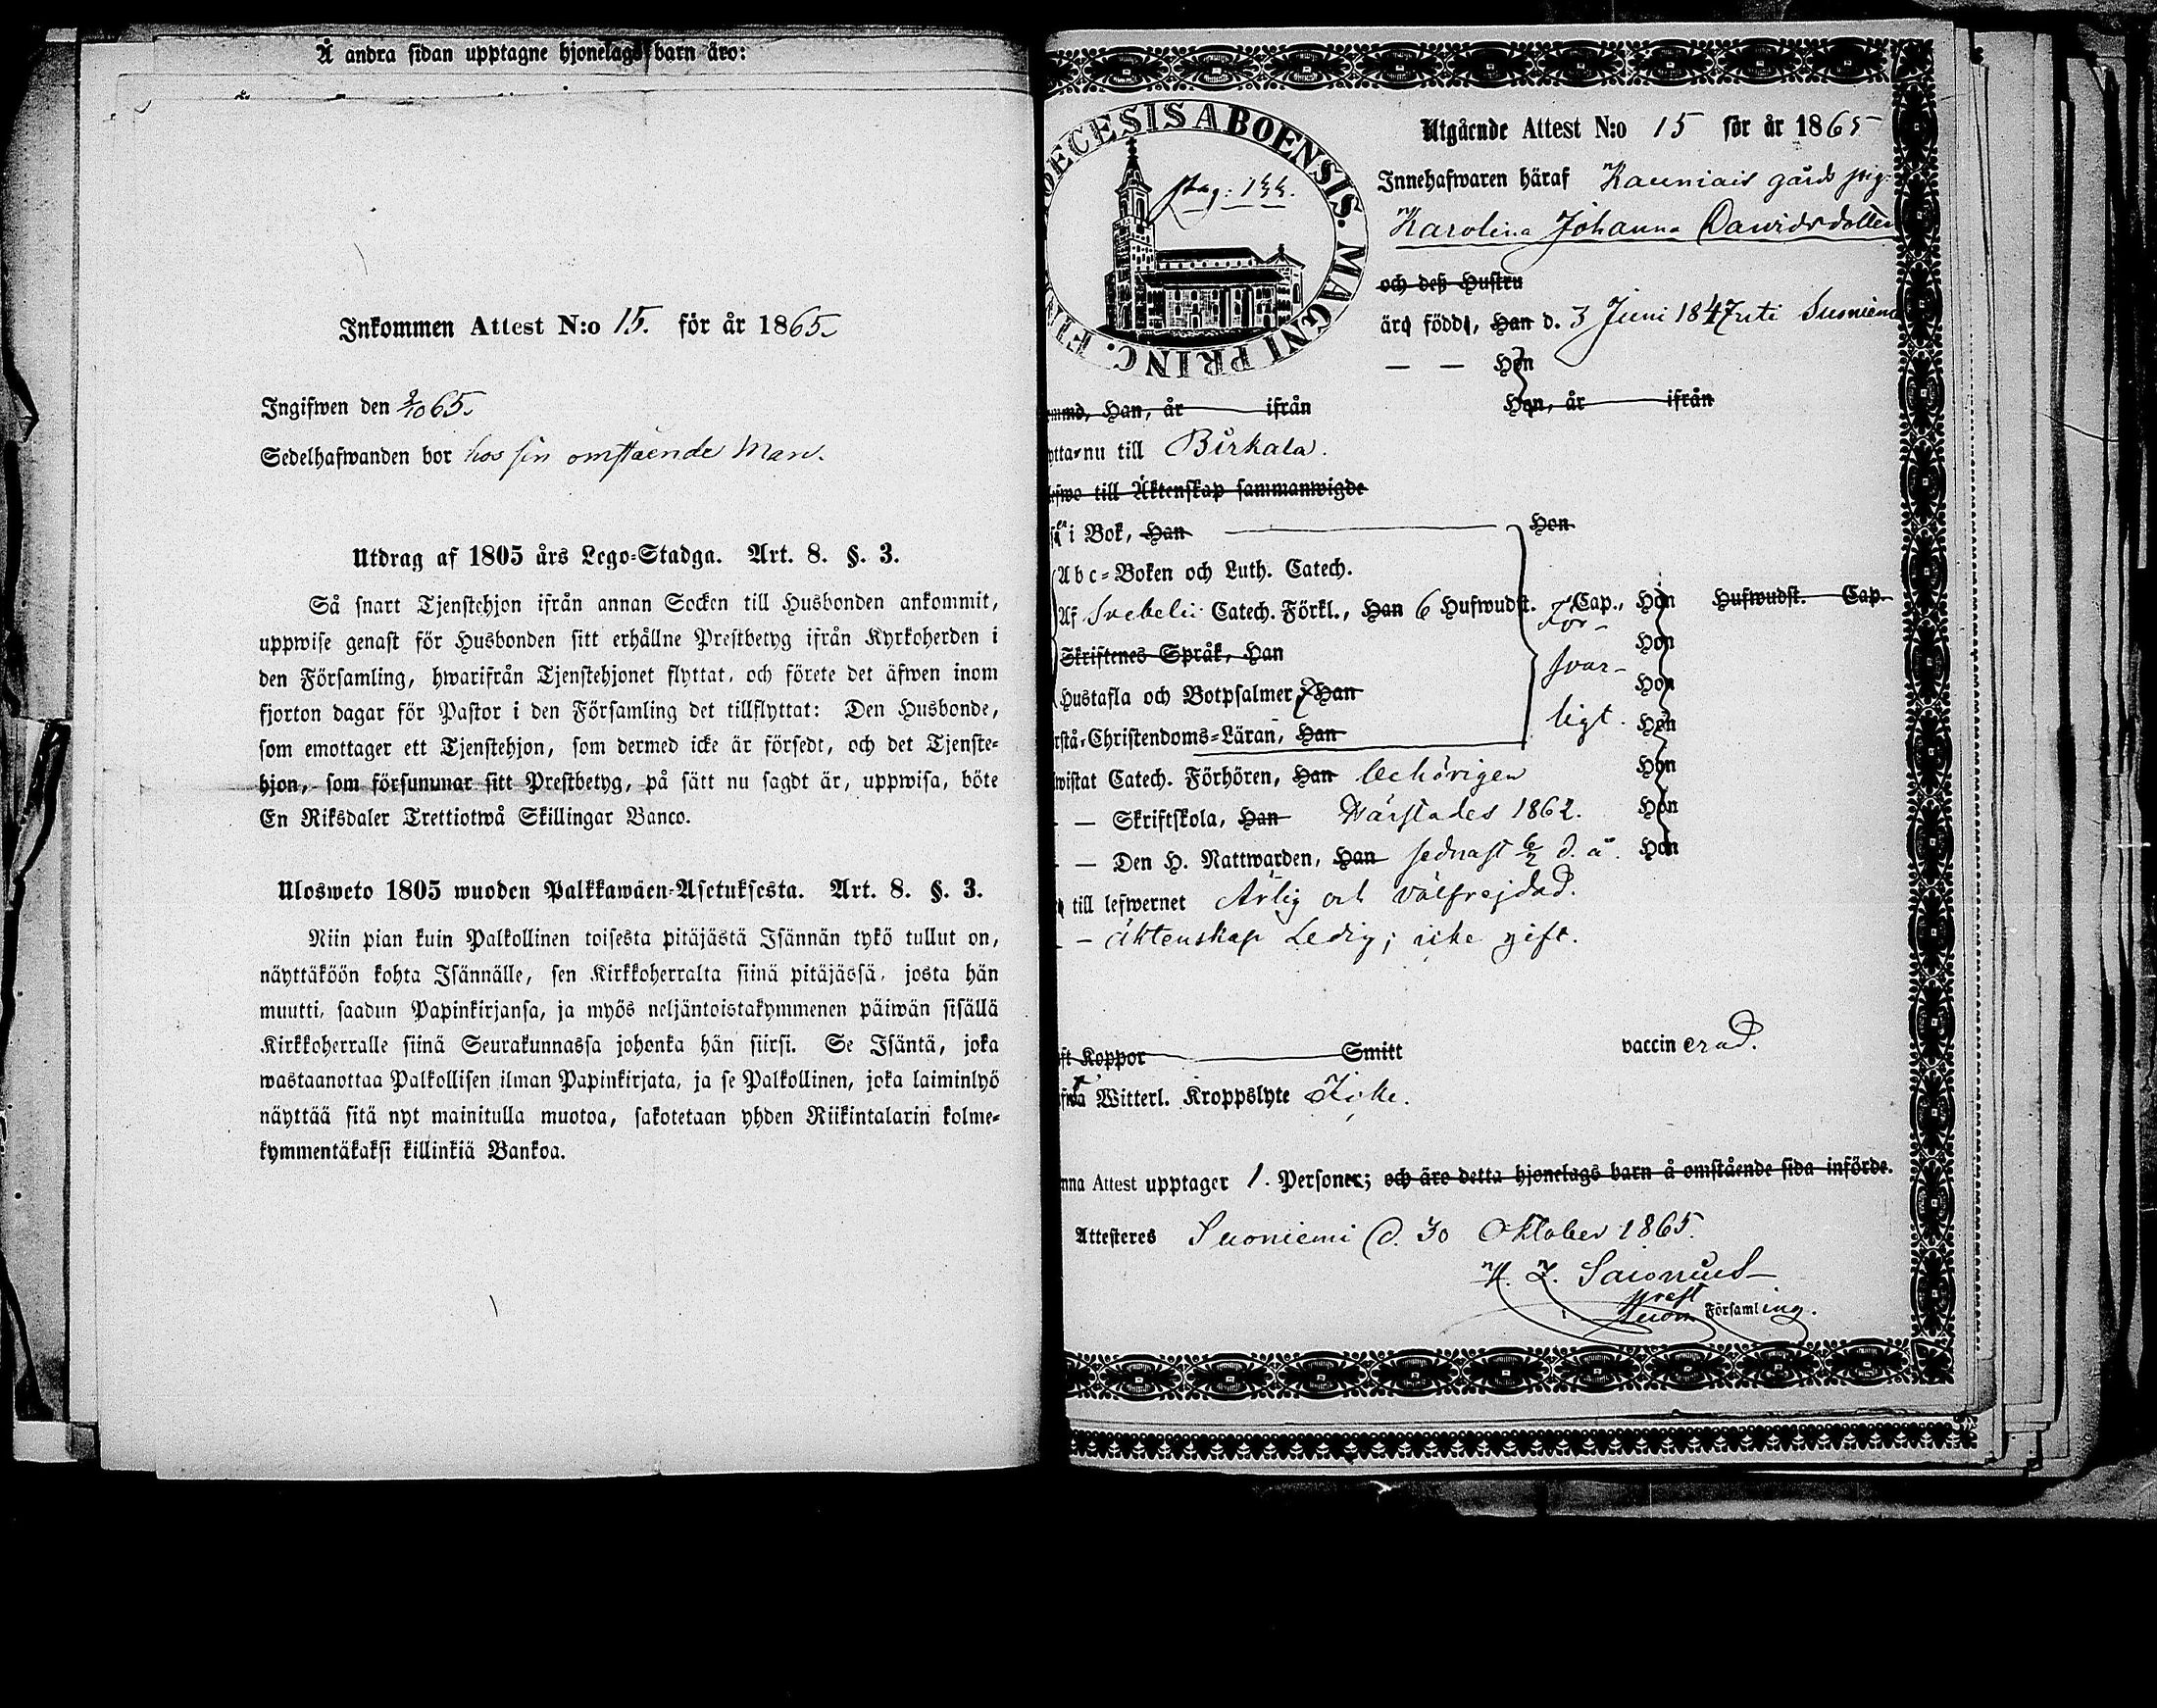 Å andra sidan upptagne hjonelags barn äro:
Inkommen Attest N:o 15. för år 1865.
Ingifwen den 9/10 65.
Sedelhafwanden bor hos sin omstående Man.
Utdrag af 1805 års Lego-Stadga. Art. 8. §. 3.
Så snart Tjenstehjon ifrån annan Socken till Husbonden ankommit,
uppwise genast för Husbonden sitt erhållne Prestbetyg ifrån Kyrkoherden i
den Församling, hwarifrån Tjenstehjonet flyttat, och förete det äfwen inom
fjorton dagar för Pastor i den Församling det tillflyttat: Den Husbonde,
som emottager ett Tjenstehjon, som dermed icke är försedt, och det Tjenste-
hjon, som försummar sitt Prestbetyg, på sätt nu sagdt är, uppwisa, böte
En Riksdaler Trettiotwå Skillingar Banco.
Ulosweto 1805 wuoden Palkkawäen-Asetuksesta. Art. 8. §. 3.
Niin pian kuin Palkollinen toisesta pitäjästä Isännän tykö tullut on,
näyttäköön kohta Isännälle, sen Kirkkoherralta siinä pitäjässä, josta hän
muutti, saadun Papinkirjansa, ja myös neljäntoistakymmenen päiwän sisällä
Kirkkoherralle siinä Seurakunnassa johonka hän siirsi. Se Isäntä, joka
wastaanottaa Palkollisen ilman Papinkirjata, ja se Palkollinen, joka laiminlyö
näyttää sitä nyt mainitulla muotoa, sakotetaan yhden Riikintalarin kolme-
kymmentäkaksi killinkiä Bankoa.
OECESIS ABOENSIS. MAGNI PRINC. FIN
pag: 144.
Utgående Attest N:o 15 för år 1865
Innehafwaren häraf Kauniais gårds pig:
Karolina Johanna Dawidsdotter
och dess Hustru
äro födde, Han d. 3 Juni 1847 uti Suoniemi
— — Hon
Han, år ifrån Hon, år ifrån
nu till Birkala.
till Äktenskap sammanwigde
i Bok, Han Hon
Abc-Boken och Luth. Catech.
Af Svebelii Catech. Förkl., Han 6 Hufwudst. Cap., Hon Hufwudst. Cap.
För-
Skriftenes Språk, Han Hon
svar-
Hustafla och Botpsalmer, Han Hon
ligt.
Christendoms-Läran, Han Hon
Catech. Förhören, Han behörigen Hon
— Skriftskola, Han Wårstades 1862. Hon
— Den H. Nattwarden, Han sednast 6/2 d. å. Hon
till lefwernet Ärlig och välfrejdad.
— Äktenskap Ledig; icke gift.
Koppor Smitt vaccinerad.
Witterl. Kroppslyte Icke.
Attest upptager 1. Personer; och äro detta hjonelags barn å omstående sida införde.
Attesteres Suoniemi d. 30 Oktober 1865.
Församling.